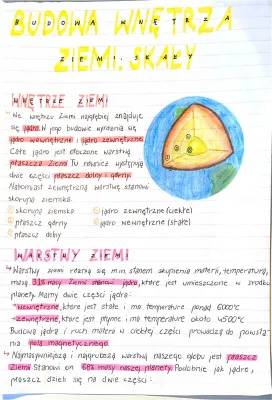 BUDOWA WNĘTRZA
ZIEMI. SKAŁY
WNĘTRZE ZIEMI
We wnętrzu Ziemi najgłębiej znajduje
się jądro. W jego budowie wyróżnia się
jądro wewnętrzne i jądro zewnętrzne.
Całe jądro jest otoczone warstwą
płaszcza Ziemi. Tu również występują
dwie części płaszcz dolny i górny.
Natomiast zewnętrzną warstwę stanowi
skorupa ziemska.
① skorupa ziemska ④ jądro zewnętrzne (ciekłe)
② płaszcz górny ⑤ jądro wewnętrzne (stałe)
③ płaszcz dolny
WARSTWY ZIEMI
↳ Warstwy ziemi różnią się m.in. stanem skupienia materii, temperaturą,
masą. 31% masy Ziemi stanowi jądro, które jest umieszczone w środku
planety. Mamy dwie części jądra:
-wewnętrzne, które jest stałe i ma temperaturę ponad 6000°C
-zewnętrzne, które jest płynne i ma temperaturę około 4500°C
Budowa jądra i ruch materii w ciekłej części prowadzą do powsta
nia pola magnetycznego.
↳ Najmasywniejszą i najgrubszą warstwą naszego globu jest płaszcz
Ziemi. Stanowi on 68% masy naszej planety. Podobnie jak jądro,
płaszcz dzieli się na dwie części: